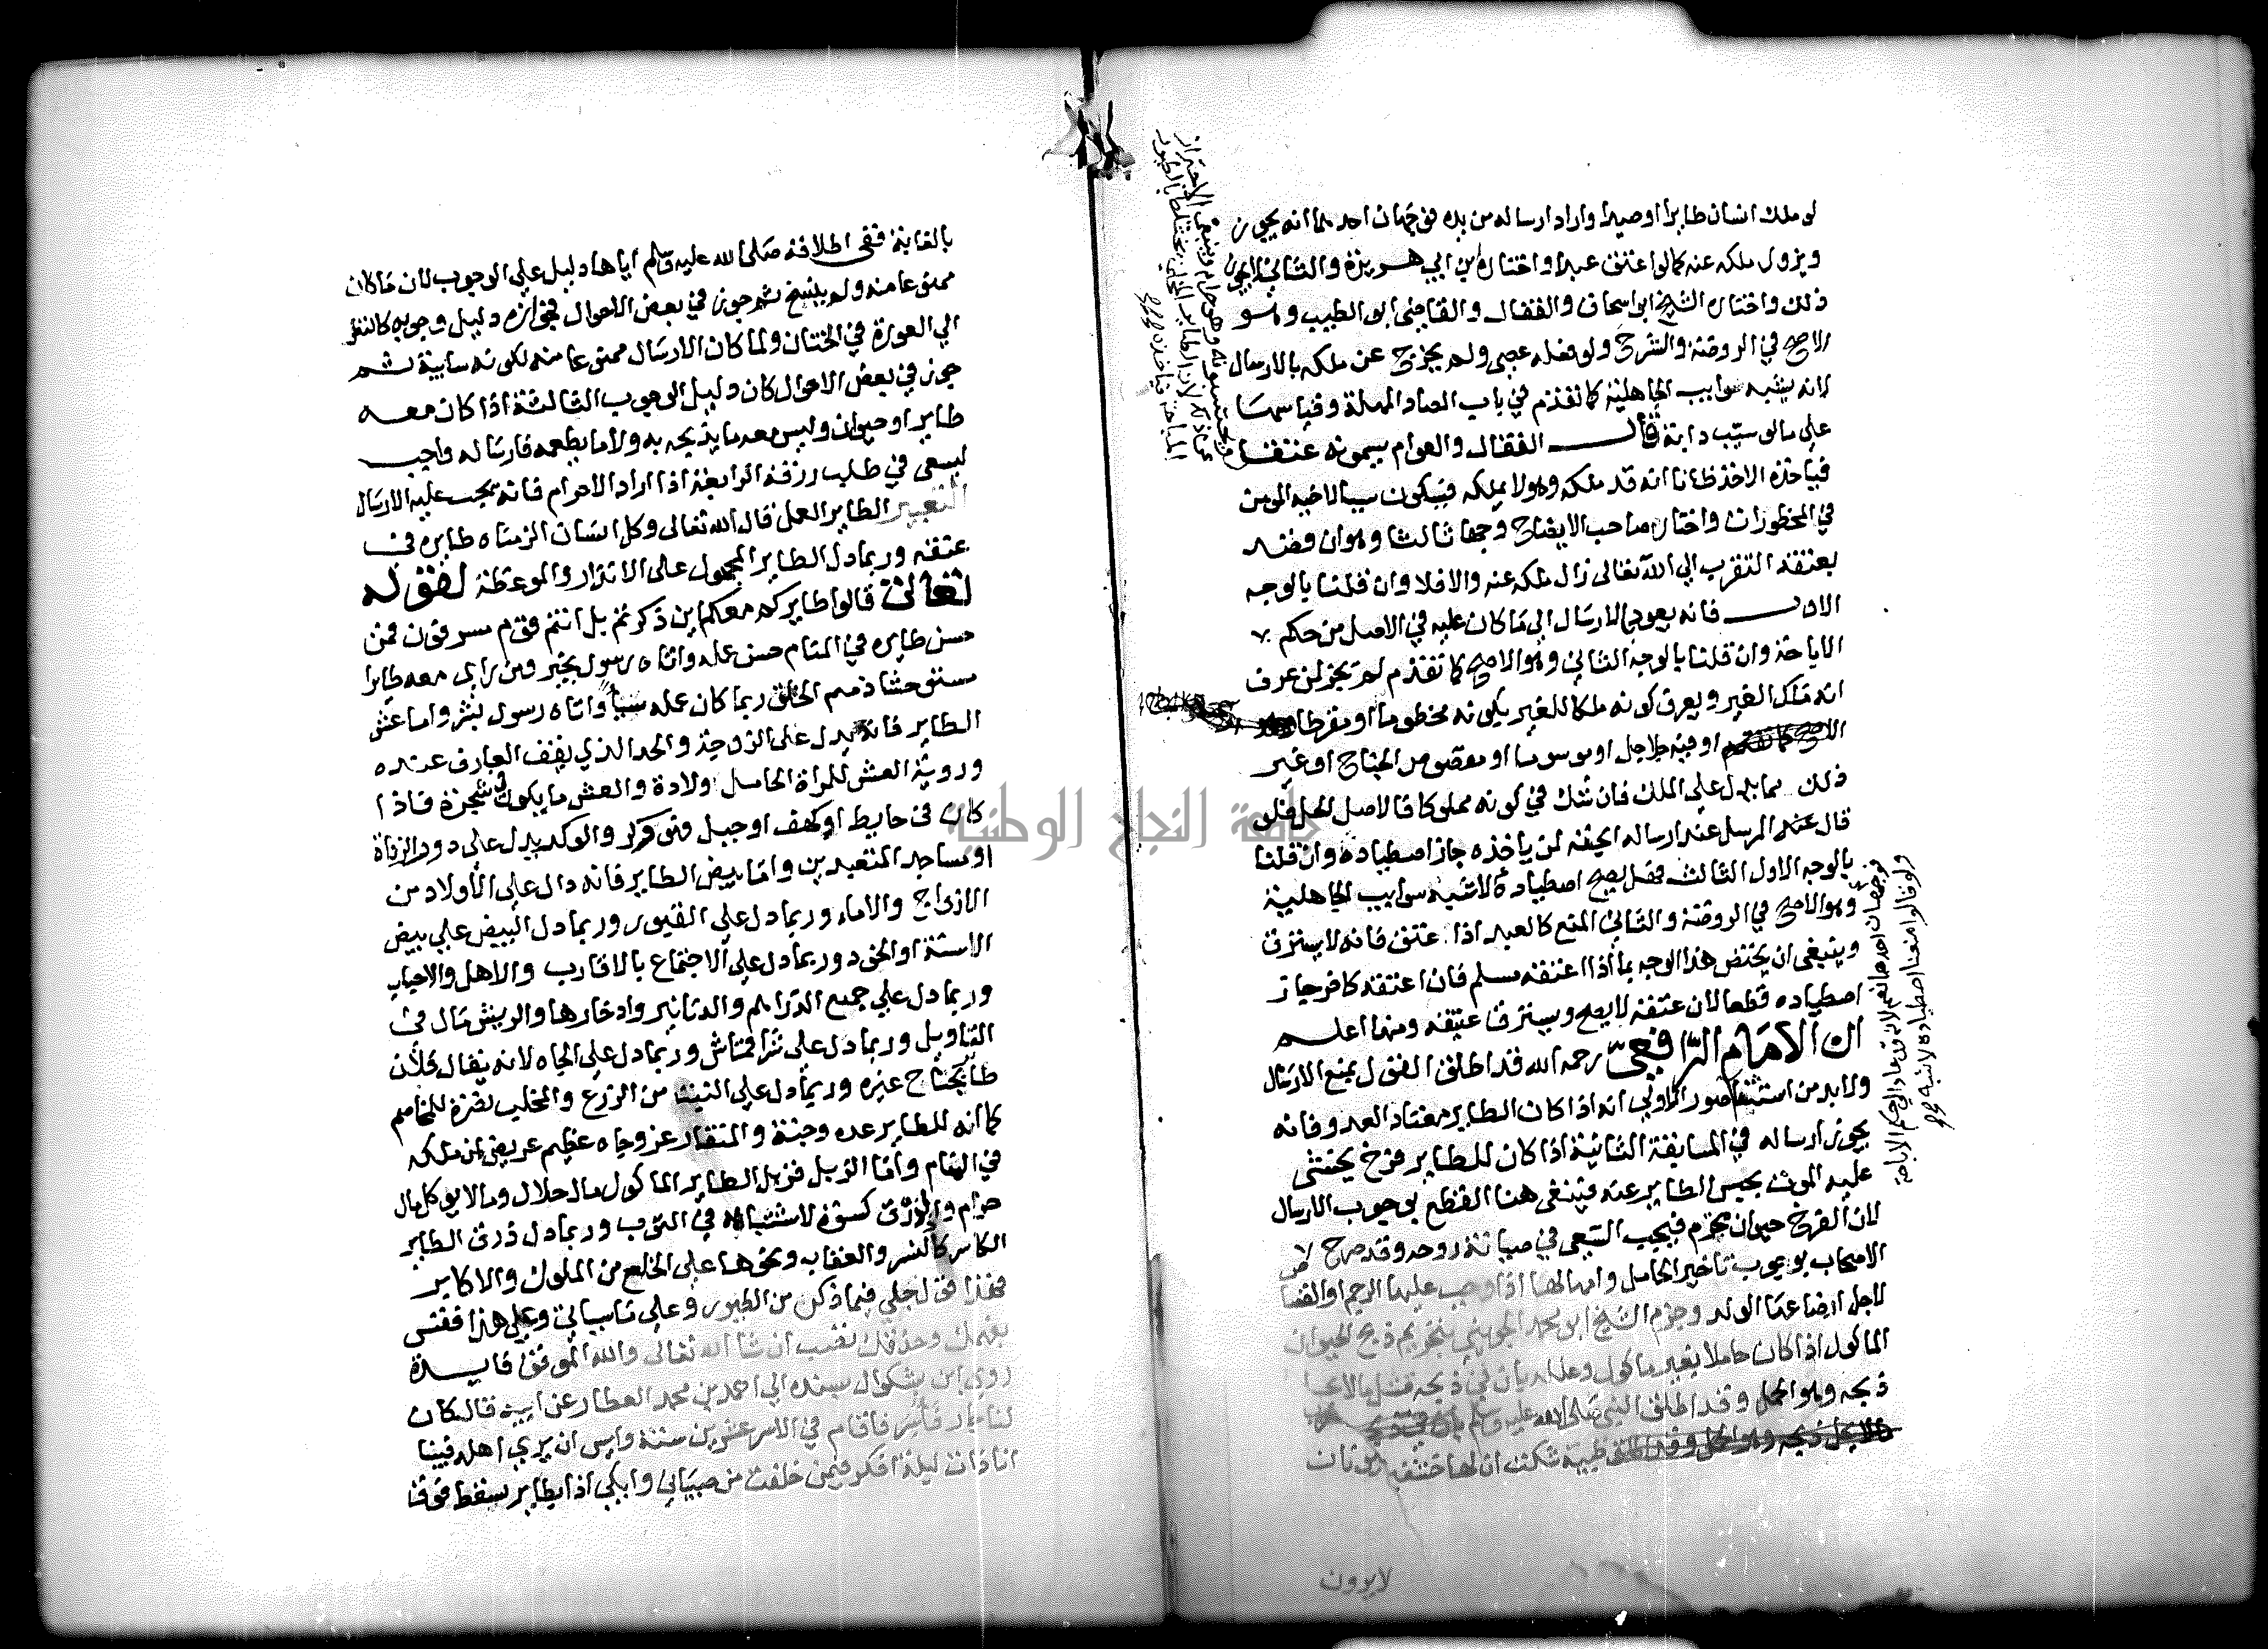 لو ملك انسان طايرا او صيدا واراد ارساله من يده فوجهان احدهما انه يجوز
ويزول ملكه عنه كما لو اعتق عبدا واختاره ابن ابي هريرة والثاني لا يجوز
ذلك واختاره الشيخ ابو اسحاق والقفال والقاضي ابو الطيب وهو
الاصح في الروضة والشرح ولو فعله عصى ولم يخرج عن ملكه بالارسال
لانه يشبه سوايب الجاهلية كما تقدم في باب الصاد المهملة وقياسها
على ما لو سيب دابة قال القفال والعوام يسمونه عتقا
فياخذه الاخذ ظانا انه قد ملكه وهو لا يملكه فيكون سببا لاخيه المومن
في المحظورات واختار صاحب الايضاح وجها ثالثا وهو ان قصد
بعتقه التقرب الي الله تعالى زال ملكه عنه والا فلا وان قلنا بالوجه
الاول فانه يعود بالارسال الى ما كان عليه في الاصل من حكم
الاباحة وان قلنا بالوجه الثاني وهو الاصح كما تقدم لم يجز لمن عرف
انه ملك الغير ويعرف كونه ملكا للغير بكونه مخظوما او مقرطا
او فيه جلاجل او موسوما او مقصوص الجناح او غير
ذلك مما يدل على الملك فان شك في كونه مملوكا فالاصل الحل فلو
قال عند المرسل عند ارساله ابحته لمن ياخذه جاز اصطياده وان قلنا
بالوجه الاول الثالث فهل يصح اصطياده لاشبه سوايب الجاهلية
وهو الاصح في الروضة والثاني المنع كالعبد اذا عتق فانه لا يسترق
وينبغي ان يختص هذا الوجه بما اذا اعتقه مسلم فان اعتقه كافر جاز
اصطياده قطعا لان عتقه لا يصح ويسترق عتيقه ومنها اعلم
ان الامام الرافعي رحمه الله قد اطلق القول بمنع الارسال
ولا بد من استثنا صور الاولى انه اذا كان الطاير معتاد العدو فانه
يجوز ارساله في المسابقة الثانية اذا كان للطاير فرخ يخشى
عليه الموت بحبس الطاير عنه فينبغي هنا القطع بوجوب الارسال
لان الفرخ حيوان محترم فيجب السعي في صيانة روحه وقد صرح
الاصحاب بوجوب تاخير الحامل وامهالها اذا وجب عليها الرجم او القصا
لاجل ارضاعها الولد وجزم الشيخ ابو محمد الجويني بتحريم ذبح الحيوان
الماكول اذا كان حاملا بغير ماكول وعلله بان في ذبحه قتل ما لا يحل
ذبحه وهو الحمل وقد اطلق النبي صلى الله عليه وسلم
ظبية شكت ان لها خشفين
لا يرون
وينبغي الاحتراز
ولو قالوا منعنا اصطياده لاشبه
بالغابة ففي اطلاقه صلى الله عليه وسلم اياها دليل على الوجوب لان ما كان
ممنوعا منه ولم ينسخ ثم جوز في بعض الاحوال فجوازه دليل وجوبه كالنظر
الي العورة في الختان ولما كان الارسال ممنوعا منه لكونه سايبة ثم
جوز في بعض الاحوال كان دليل الوجوب الثالثة اذا كان معه
طاير او حيوان وليس معه ما يذبحه به ولا ما يطعمه فارساله واجب
ليسعى في طلب رزقه الرابعة اذا اراد الاحرام فانه يجب عليه الارسال
التعبير الطاير العمل قال الله تعالى وكل انسان الزمناه طايره في
عنقه وربما دل الطاير المجهول على الانذار والموعظة لقوله
تعالى قالوا طايركم معكم اين ذكرتم بل انتم قوم مسرفون فمن
حسن طايره في المنام حسن عمله واتاه رسول بخير ومن راى معه طايرا
مستوحشا ذميم الخلق ربما كان عمله سيئا واتاه رسول بشر واما عش
الطاير فانه يدل على الزوجية والحد الذي يقف العارف عنده
وروية العش للمراة الحامل ولادة والعش ما يكون في شجرة فاذا
كان في حايط او كهف او جبل فهو وكر والوكر يدل على دور الزناة
او مساجد المتعبدين واما بيض الطاير فانه دال على الاولاد من
الازواج والاماء وربما دل على القبور وربما دل البيض على بيض
الاسنة او الخود وربما دل على الاجتماع بالاقارب والاهل والاحباب
وربما دل على جمع الدراهم والدنانير وادخارها والريش مال في
التاويل وربما دل على شرا قماش وربما دل على الجاه لانه يقال فلان
طار بجناح غيره وربما دل على النبت من الزرع والمخلب نصرة للمخاصم
كما انه للطاير عده وجنة والمنقار عز وجاه عظيم عريض لمن ملكه
في المنام واما الزبل فزبل الطاير الماكول مال حلال وما لا يوكل مال
حرام والذرق كسوة لاشتباهه في الثوب وربما دل ذرق الطاير
الكاسر كالنسر والعقاب ونحوها على الخلع من الملوك والاكابر
فهذا قول جلي فيما ذكر من الطيور وعلى ما سياتي وعلى هذا فقس
بفهمك وحذقك تصب ان شا الله تعالى والله الموفق فايدة
روى ابن بشكوال بسنده الي احمد بن محمد العطار عن ابيه قال كان
لنا جار فاسر فاقام في الاسر عشرين سنة وايس ان يرى اهله فبينا
انا ذات ليلة افكر فيمن خلفت من صبياني وابكي اذا بطاير سقط فوق
جامعة النجاح الوطنية